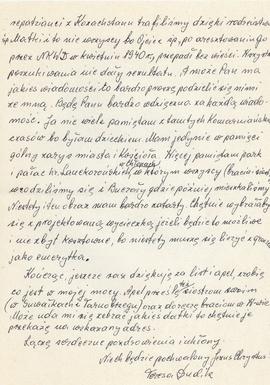 repatrianci z Kazachstanu trafiliśmy dzięki rodzeństwu
śp. Matki i to nie wszyscy bo Ojciec śp. po aresztowaniu go
przez NKWD w kwietniu 1940 r, przepadł bez wieści. Wszystkie
poszukiwania nie dały rezultatu. A może Pan ma
jakieś wiadomości to bardzo proszę podzielić się nimi
ze mną. Będę Panu bardzo wdzięczna za każdą wiado-
mość. Ja nie wiele pamiętam z tamtych Komarniańskich
czasów bo byłam dzieckiem. Mam jedynie w pamięci
gólny zarys miasta i Kościoła. Więcej pamiętam park
i pałac hr. Lanckorońskich w którym wszyscy (bracia i siostry
urodziliśmy się i Buczały gdzie później mieszkaliśmy
Niestety i tu obraz mam bardzo zatarty. Chętnie wybrałaby
się z projektowaną wycieczką, jeżeli będzie to możliwe
i nie zbyt kosztowne, bo niestety muszę się liczyć z groszem
jako emerytka.
Kończąc, jeszcze raz dziękuję za list i apel, zrobię
co jest w mojej mocy. Apel prześlę też siostrom swoim
(w Suwałkach i Tarnobrzegu) oraz doręczę braciom w K-wie
Może uda mi się zebrać jakieś datki to chętnie je
przekażę na wskazany adres.
Łączę serdeczne pozdrowienia i ukłony
Niech będzie pochwalony Jezus Chrystus.
Teresa